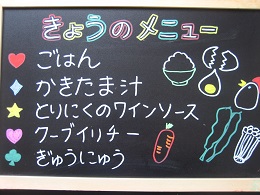 きょうのメニュー
ごはん
かきたま汁
とりにくのワインソース
クーブイリチー
ぎゅうにゅう